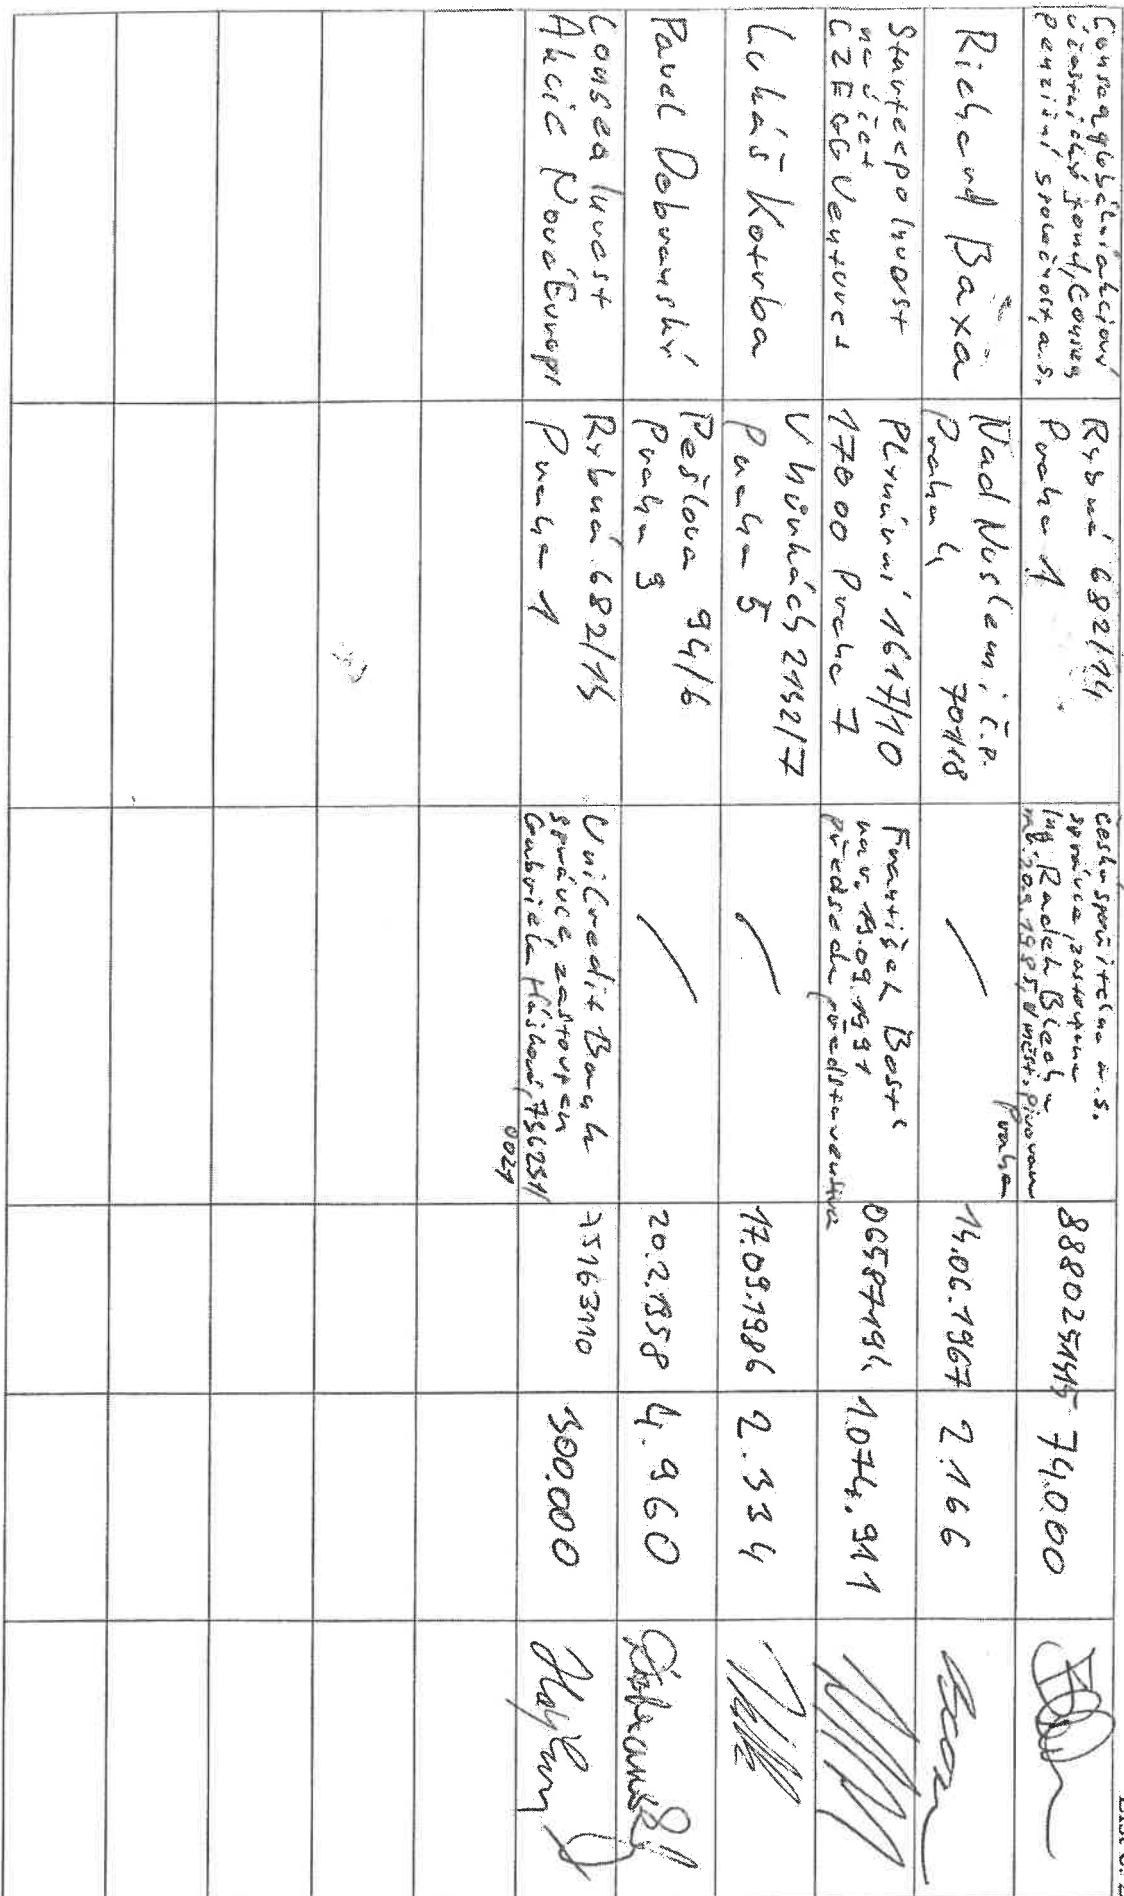 Conseq globální akciový
účastnický fond, Conseq
penzijní společnost, a.s.
Rybná 682/14
Praha 1
Česká spořitelna a.s.
správce, zastoupena
Ing. Radek
Praha
74.000
Richard Baxa
Nad Nuslemi č.p.
701/18
Praha 4
/
14.06.1967
2.166
Starteepo Invest
na účet
CZECG Ventures
Plynární 1617/10
170 00 Praha 7
František Bostl
nar. 19.09.1991
předseda představenstva
06587194
1.074.911
Lukáš Kotrba
V hůrkách 2142/7
Praha 5
/
17.09.1986
2.334
Pavel Dobranský
Pešlova 94/6
Praha 9
/
20.2.1958
4.960
Conseq Invest
Akcie Nové Evropy
Rybná 682/14
Praha 1
UniCredit Bank
správce, zastoupen
Gabriela
0021
300.000